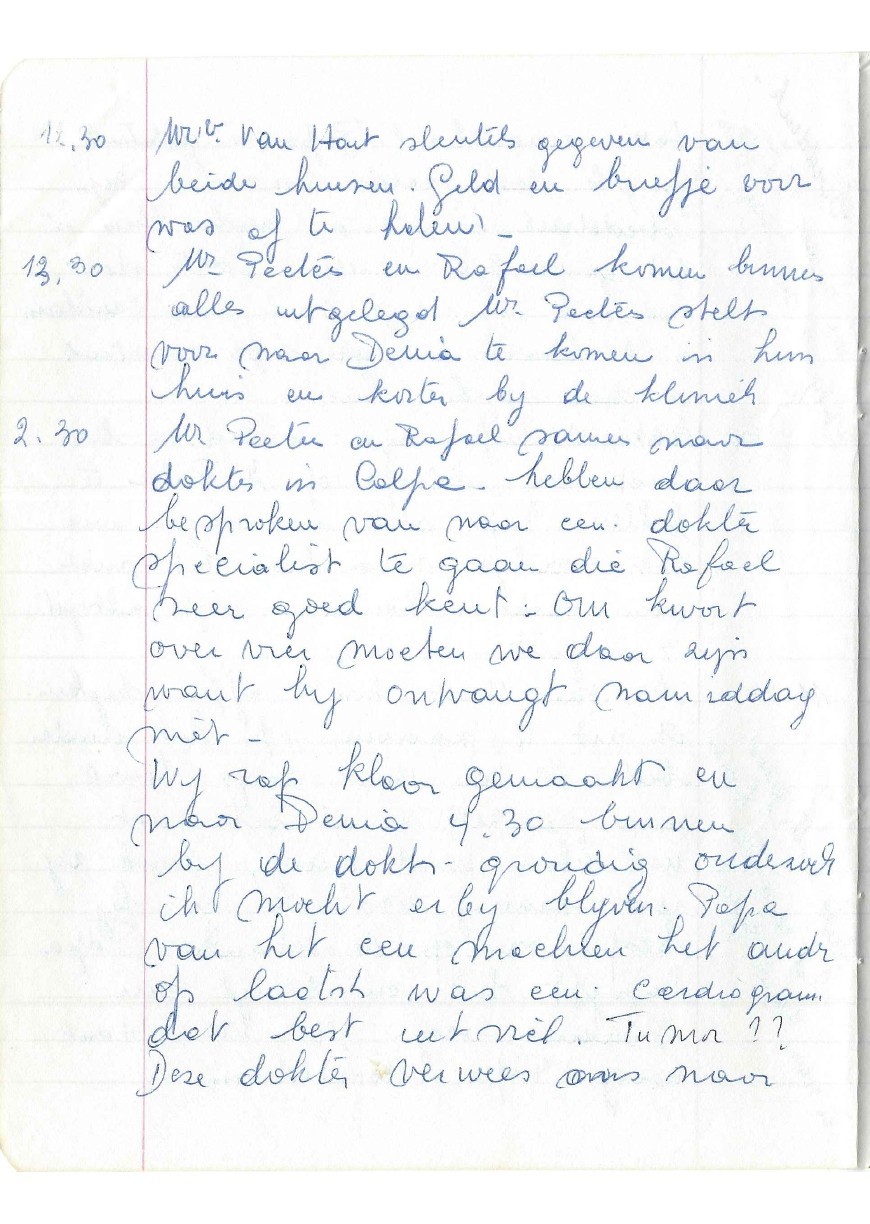 12.30 Mr. Van Hout sleutels gegeven van
beide huisen. Geld en briefje voor
was af te halen. -
13,30 Mr Peeters en Rafael komen binnen
alles uitgelegd Mr. Peeters stelt
voor naar Denia te komen in hun
huis en korter by de kliniek
2.30 Mr Peeters en Rafael samen naar
dokter in Calpa - hebben daar
besproken van naar een dokter
specialist te gaan die Rafael
zeer goed kent - Om kwart
over vier moeten we daar zijn
want hy ontvangt namiddag
niet -
Wy rap klaar gemaakt en
naar Denia 4.30 binnen
by de dokter grondig onderzoek
ik mocht erby blyven Papa
van het een machien het andr
op laatste was een cardiogram
dat best uitviel. Tumor ??
Deze dokter verwees ons naar